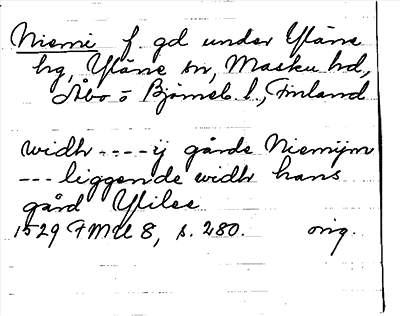 Niemi f. gd under Yläne
hg, Yläne sn, Masku hd,
Åbo o Björneb. l., Finland
widh ---- ij gårde Niemijm
--- liggende widh hans
gård Yliee
1529 FMU 8, s. 280. orig.